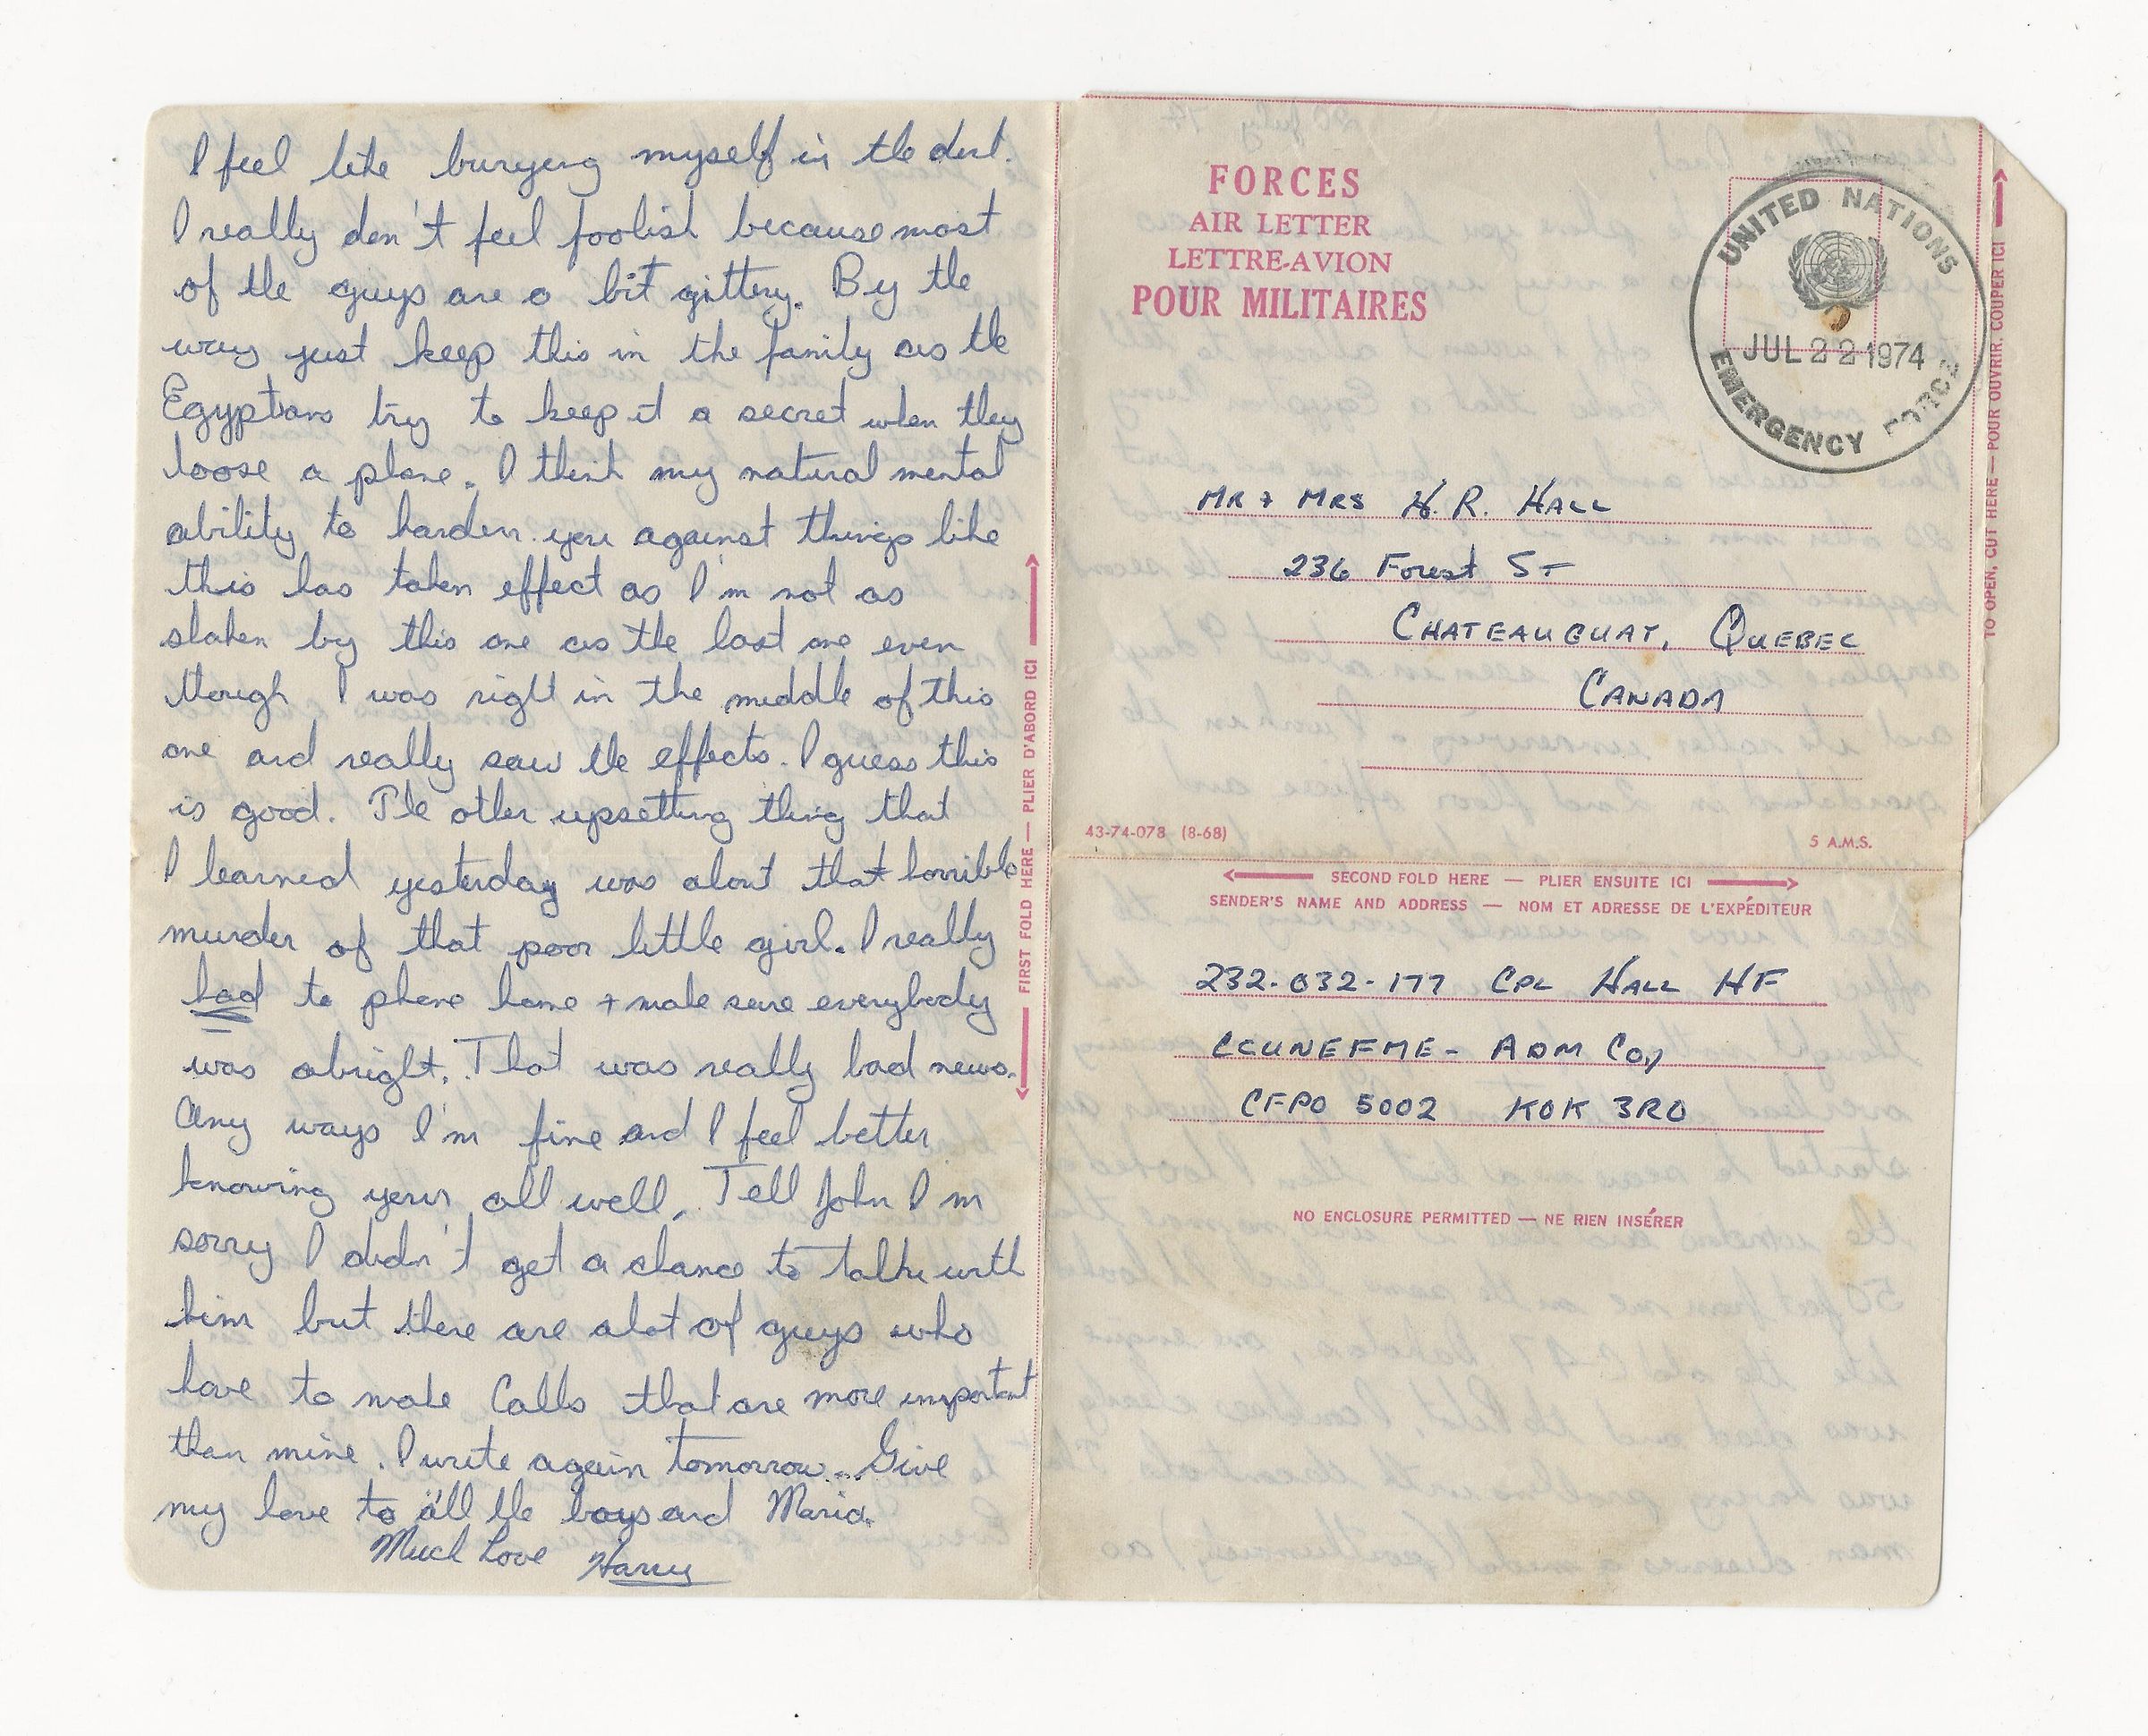 I feel like burying myself in the dirt.
I really don't feel foolish because most
of the guys are a bit gittery. By the
way just keep this in the family as the
Egyptians try to keep it a secret when they
loose a plane. I think my natural mental
ability to harden you against things like
this has taken effect as I'm not as
shaken by this one as the last one even
though I was right in the middle of this
one and really saw the effects. I guess this
is good. The other upsetting thing that
I learned yesterday was about that horrible
murder of that poor little girl. I really
had to phone home + make sure everybody
was alright. That was really bad news.
Any ways I'm fine and I feel better
knowing your all well. Tell John I'm
sorry I didn't get a chance to talk with
him but there are alot of guys who
have to make Calls that are more important
than mine. I write again tomorrow... Give
my love to all the boys and Maria.
Much Love Harry
FIRST FOLD HERE — PLIER D'ABORD ICI
FORCES
AIR LETTER
LETTRE-AVION
POUR MILITAIRES
UNITED NATIONS
JUL 22 1974
EMERGENCY FORCE
TO OPEN, CUT HERE — POUR OUVRIR, COUPER ICI
MR + MRS H. R. HALL
236 Forest ST
CHATEAUGUAY, QUEBEC
CANADA
43-74-078 (8-68)
5 A.M.S.
SECOND FOLD HERE — PLIER ENSUITE ICI
SENDER'S NAME AND ADDRESS — NOM ET ADRESSE DE L'EXPÉDITEUR
232-032-177 CPL HALL HF
CCUNEFME - ADM Coy
CFPO 5002 K0K 3R0
NO ENCLOSURE PERMITTED — NE RIEN INSÉRER